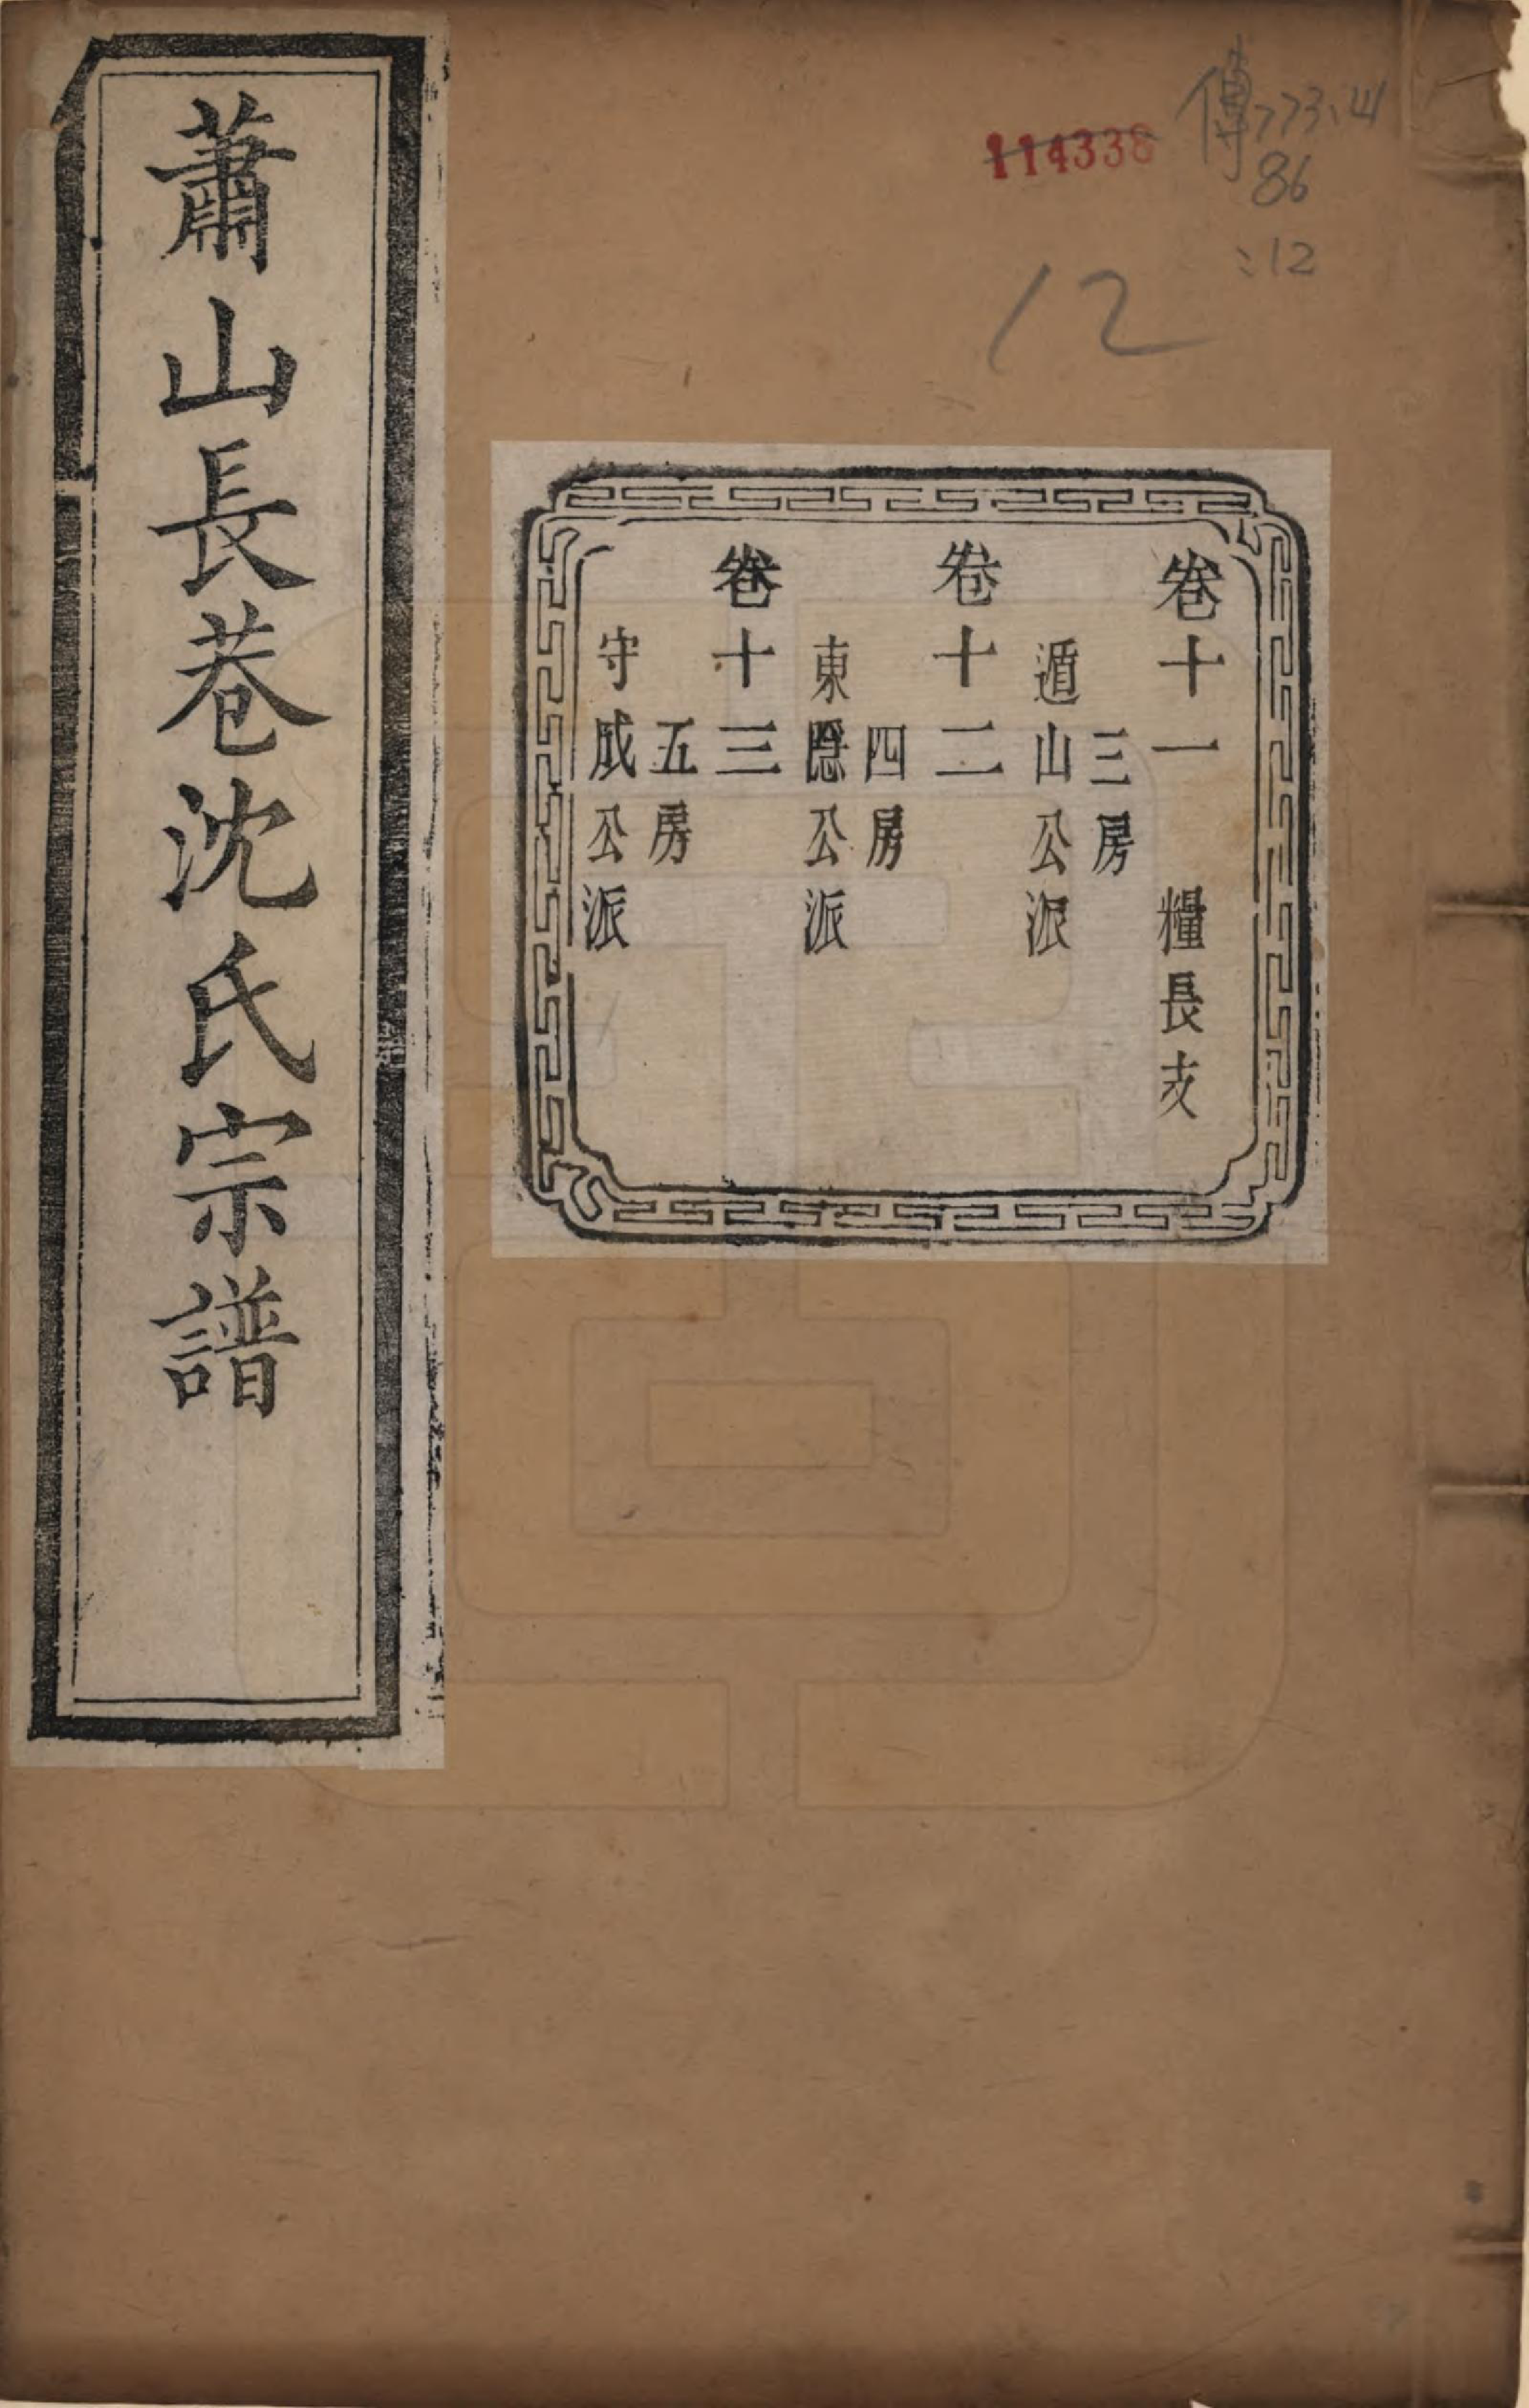 蕭山長巷沈氏宗譜
卷十一 糧長支
三房
遁山公派
卷十二
四房
東隱公派
卷十三
五房
守成公派
114338
傳773.4
86
:12
12